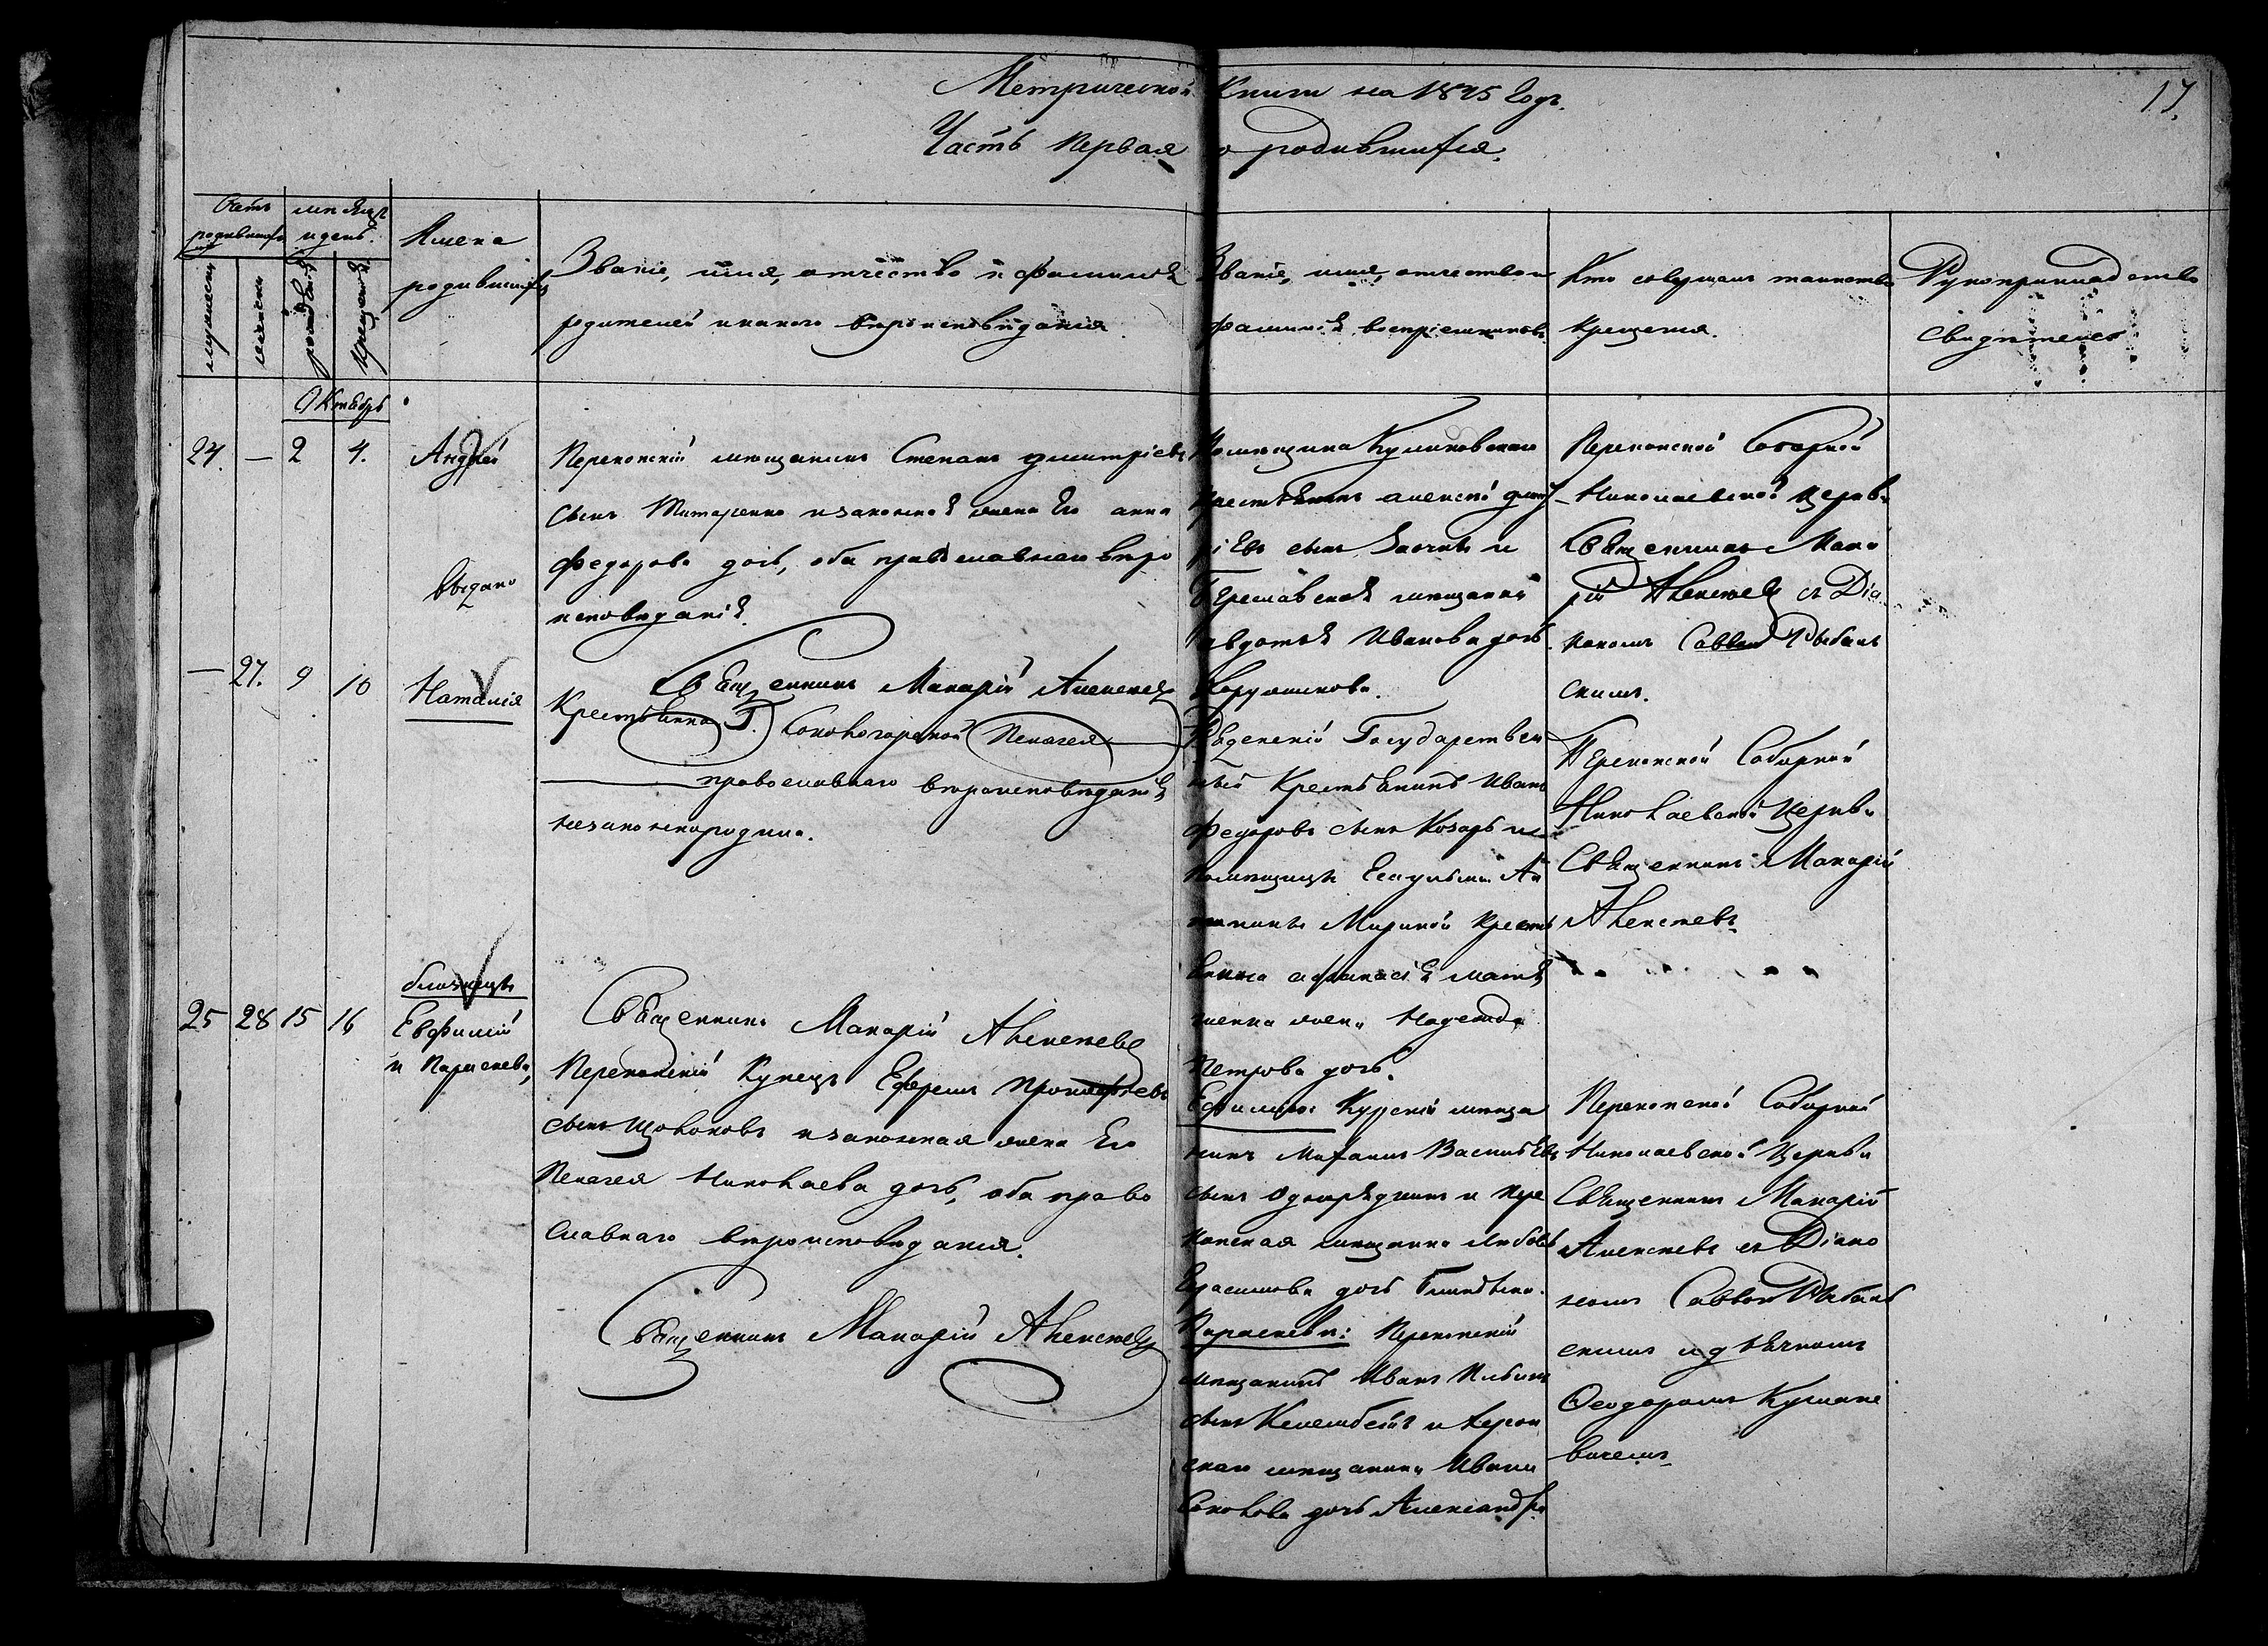 Метрической Книги на 1845 Годъ.
17.
Часть Первая о родившихся.
Счетъ родившихся
мужеска
женска
мѣсяцъ и день.
рожденія
крещенія
Имена
родившихся
Званіе, имя, отчество и фамилія
родителей и какого вѣроисповѣданія
Званіе, имя, отчество и
фамилія воспріемниковъ
Кто совершалъ таинство
крещенія.
Рукоприкладство
свидѣтелей
Октябрь
24. — 2 4.
Андрей
Выдано
Перекопскій мещанинъ Стефанъ Дмитріевъ
сынъ Титаренко и законная жена Его анна
федорова дочь, оба православнаго вѣро
исповѣданія.
Священникъ Макарій Алексеевъ
Помещика Куликовскаго
крестьянинъ алексѣй дмит
ріевъ сынъ и
мещанка
авдотья Иванова дочь
Перекопской Соборной
Николаевской церкви
Священникъ Мака
рій Алексеевъ съ Діа
кономъ Саввою Рыбаль
скимъ.
— 27. 9 10
Наталія
Крестьянка Г. Сокологорской Пелагея
православнаго вероисповеданія
незаконнородив.
Священникъ Макарій Алексеевъ
Государствен
ный Крестьянинъ Иванъ
Федоровъ сынъ Козарь и
помещицы
Мариной крестья
янина афанасія матв
жена Надежда
Петрова дочь.
Перекопской Соборной
Николаевской Церкви
Священникъ Макарій
Алексеевъ
25 28 15 16
близнецы
Евфимій
и Параскева,
Перекопскій Купецъ Ефремъ Прокофьевъ
сынъ Щоколовъ и законная жена Его
Пелагея Николаева дочь, оба право
славнаго вѣроисповѣданія.
Священникъ Макарій Алексеевъ
Ефимію: Курскій меща
нинъ Михаилъ Васильевъ
сынъ и Пере
копская мещанка любовь
Герасимова дочь
Параскевы: Перекопскій
мещанинъ Иванъ
сынъ и Херсон
скаго мещанина Ивана
Соколова дочь Александра
Перекопской Соборной
Николаевской Церкви
Священникъ Макарій
Алексеевъ съ Діако
номъ Саввою Рыбаль
скимъ и дьячкомъ
Феодоромъ Кушаке
вичемъ